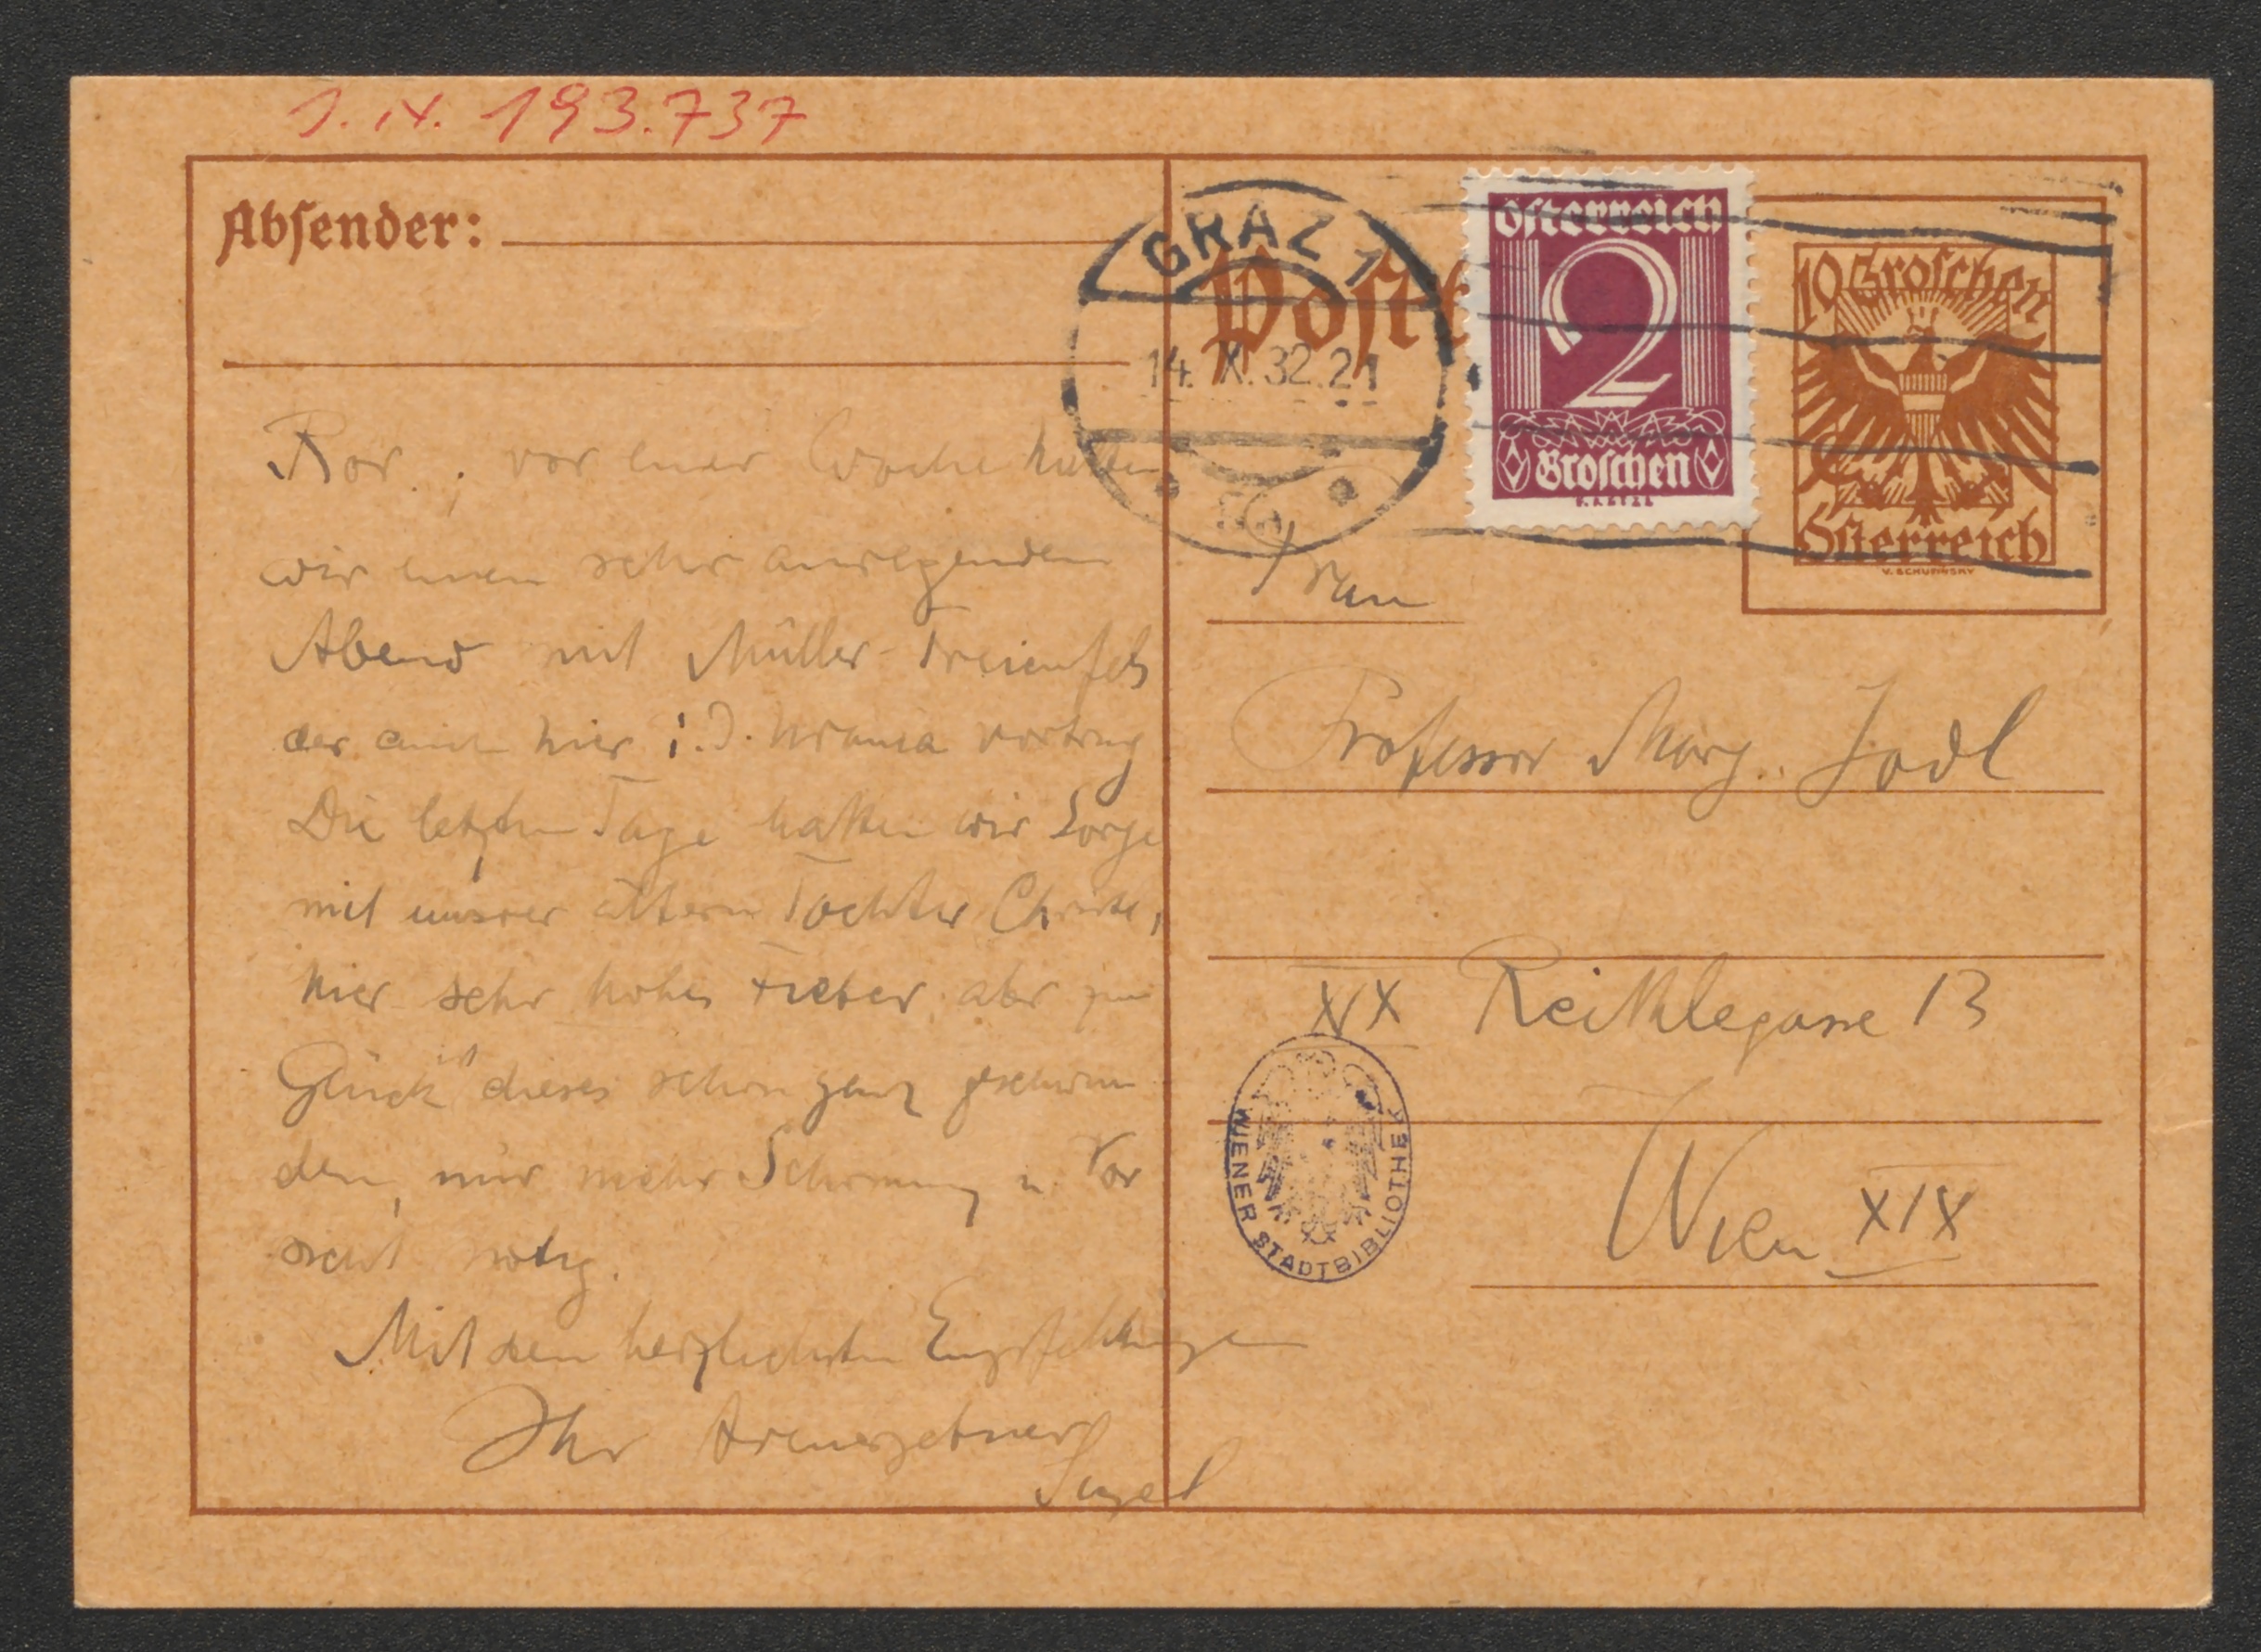 J. N. 193.737
Absender:
GRAZ 1
14. X. 32. 21
Postk
Österreich
2
Groschen
10 Groschen
Österreich
V. SCHUFINSKY
vor einer Woche hatten
wir einen sehr anregenden
Abend mit Müller-Freienfels
der auch hier i. d. Urania vortrug
Die letzten Tage hatten wir Sorge
mit unsrer ältern Tochter
hier sehr hohes Fieber, aber zum
Glück ist dieses schon ganz geschwun
den, nur mehr Schonung u. Vor
sicht nötig.
Mit den herzlichsten Empfehlungen
Ihr treuergebener
Frau
Professor Marg. Jodl
XX Reithlegasse 13
Wien XIX
WIENER STADTBIBLIOTHEK